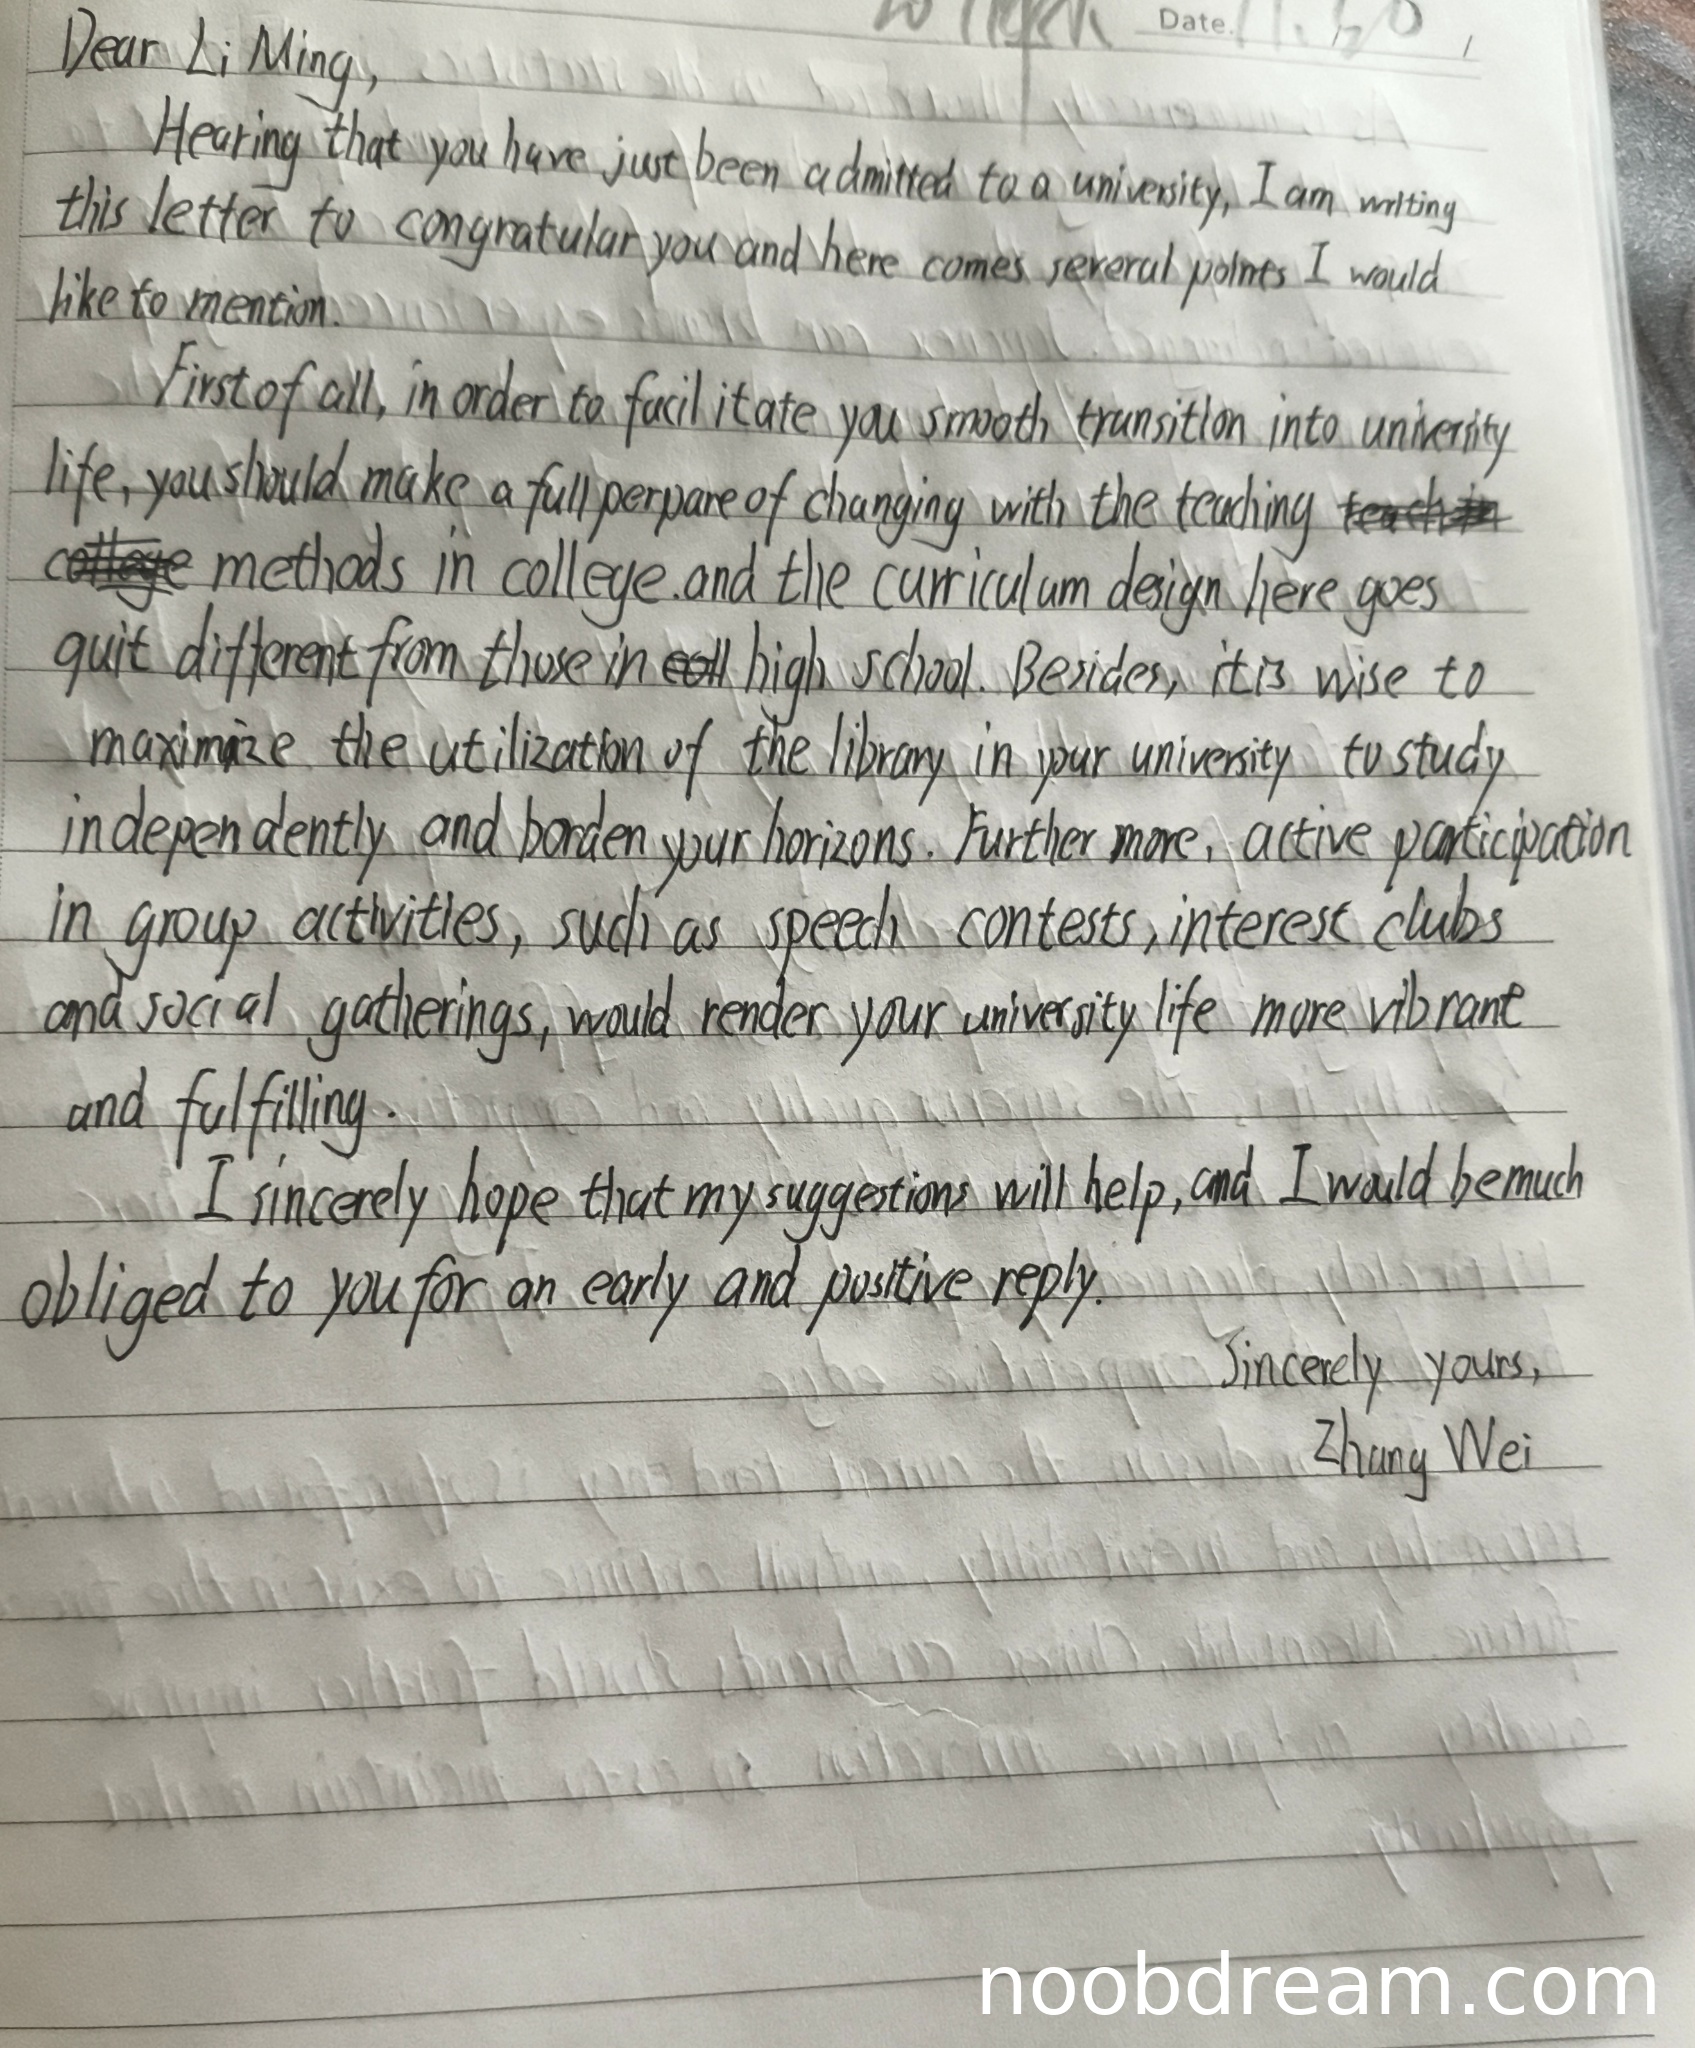 Date. 11.20
Dear Li Ming,
Hearing that you have just been admitted to a university, I am writing
this letter to congratular you and here comes several points I would
like to mention.
First of all, in order to facilitate you smooth transition into univerity
life, you should make a full perpare of changing with the teaching
methods in college.and the curriculum design here goes
quit different from those in high school. Besides, it is wise to
maximize the utilization of the library in your university to study
independently and borden your horizons. Further more, active participation
in group activities, such as speech contests, interest clubs
and social gatherings, would render your university life more vibrant
and fulfilling.
I sincerely hope that my suggestions will help, and I would be much
obliged to you for an early and positive reply.
Sincerely yours,
Zhang Wei
noobdream.com